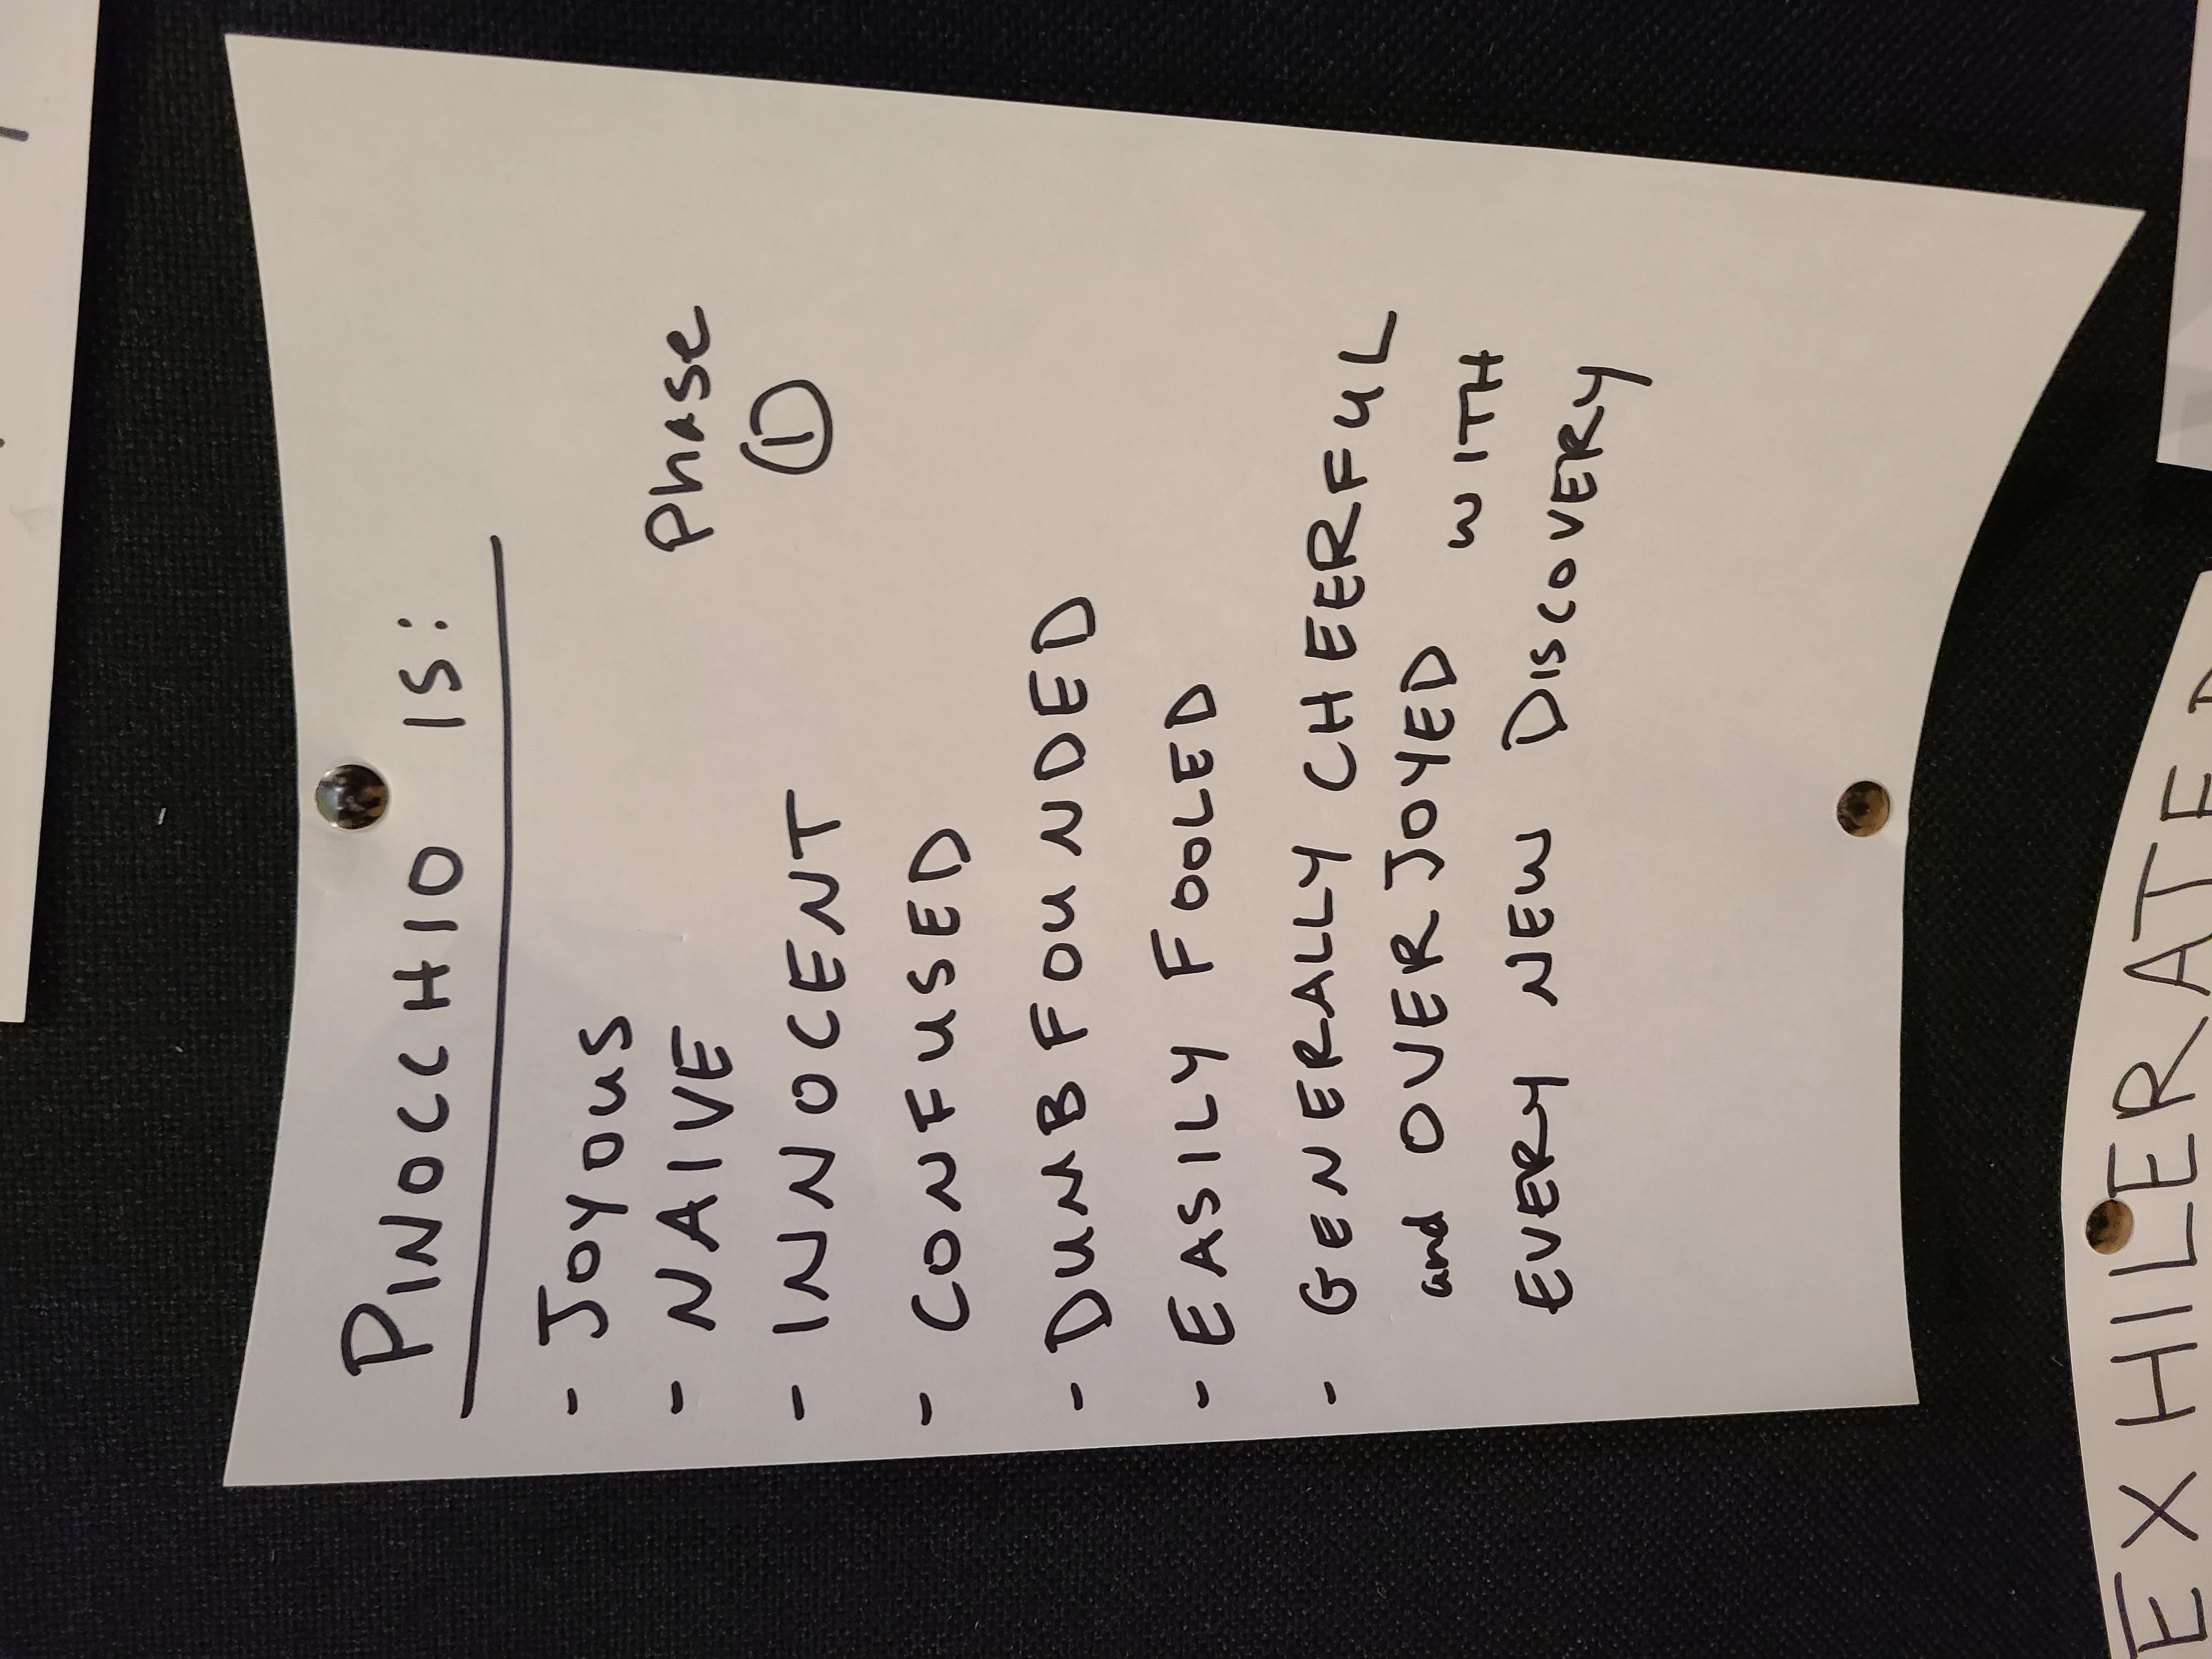 PINOCCHIO IS:
- JOYOUS
- NAIVE
Phase
①
- INNOCENT
- CONFUSED
- DUMBFOUNDED
- EASILY FOOLED
- GENERALLY CHEERFUL
and OVERJOYED WITH
EVERY NEW DISCOVERY
EXHILERATED